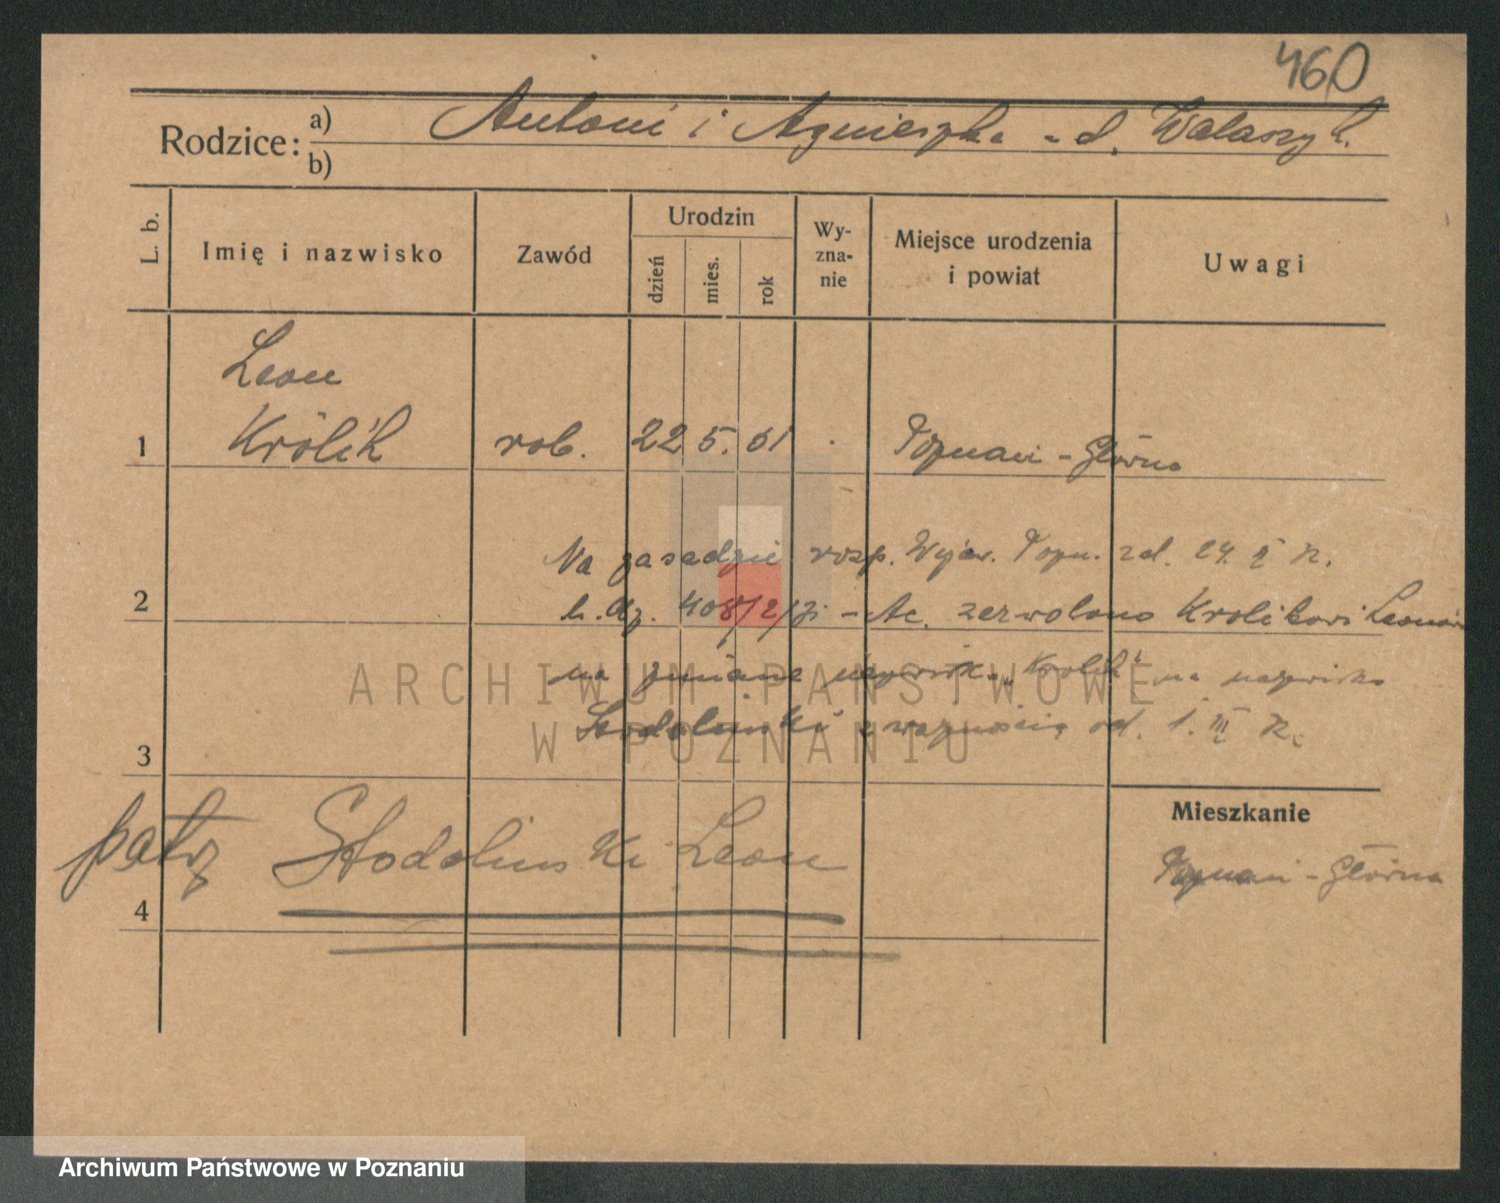 460
Rodzice: a) Antoni i Agnieszka z d. Walaszyk.
b)
L. b.
Imię i nazwisko
Zawód
Urodzin
dzień
mies.
rok
Wy-
zna-
nie
Miejsce urodzenia
i powiat
Uwagi
Leon
1 Królik rob. 22 5. 01 Poznań - Główna
Na zasadzie rozp. Wojew. Pozn. z d. 24. II
2 l. dz. 408/2/ zezwolono Krolikowi Leonowi
na zmianę nazwiska „Królik" na nazwisko
3 Stodolinski z ważnością od. 1. III
Mieszkanie
patrz Stodolinski Leon
Poznań - Główna
4
ARCHIWUM PAŃSTWOWE
W POZNANIU
Archiwum Państwowe w Poznaniu